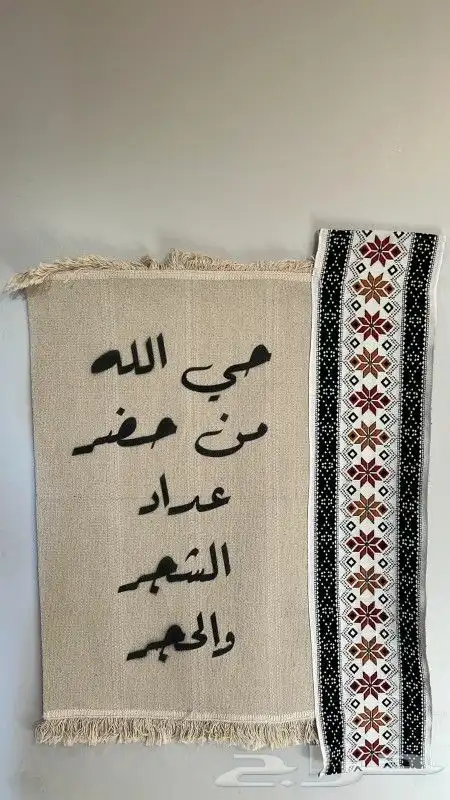 حي الله
من حضر
عداد
الشجر
والحجر
حراج